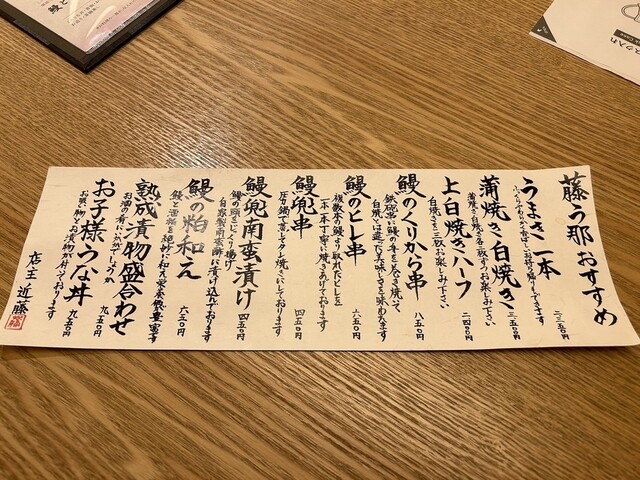 藤う那おすすめ
うまき一本
二三五〇円
蒲焼き白焼き
蒲焼き白焼き各二枚ずつお楽しみ下さい
三五〇円
上白焼きハーフ
白焼きを三枚お楽しみ下さい
二四〇〇円
鰻のくりから串
白焼とは違った美味しさを味わえます
八五〇円
鰻のヒレ串
複数本の鰻より取れたヒレを
一本一本丁寧に焼きあげております
六五〇円
鰻兜串
圧力鍋で蒸してタレ焼きにしております
四五〇円
鰻兜南蛮漬け
鰻の頭をじっくり揚げ
自家製南蛮酢に漬け込んでおります
四五〇円
鰻の粕和え
鰻と酒粕を絶妙に和え栄養価も豊富です
六三〇円
熟成漬物盛合わせ
お酒の肴にいかがでしょうか
九五〇円
お子様うな丼
お吸い物とお漬物が付いております
九五〇円
店主 近藤